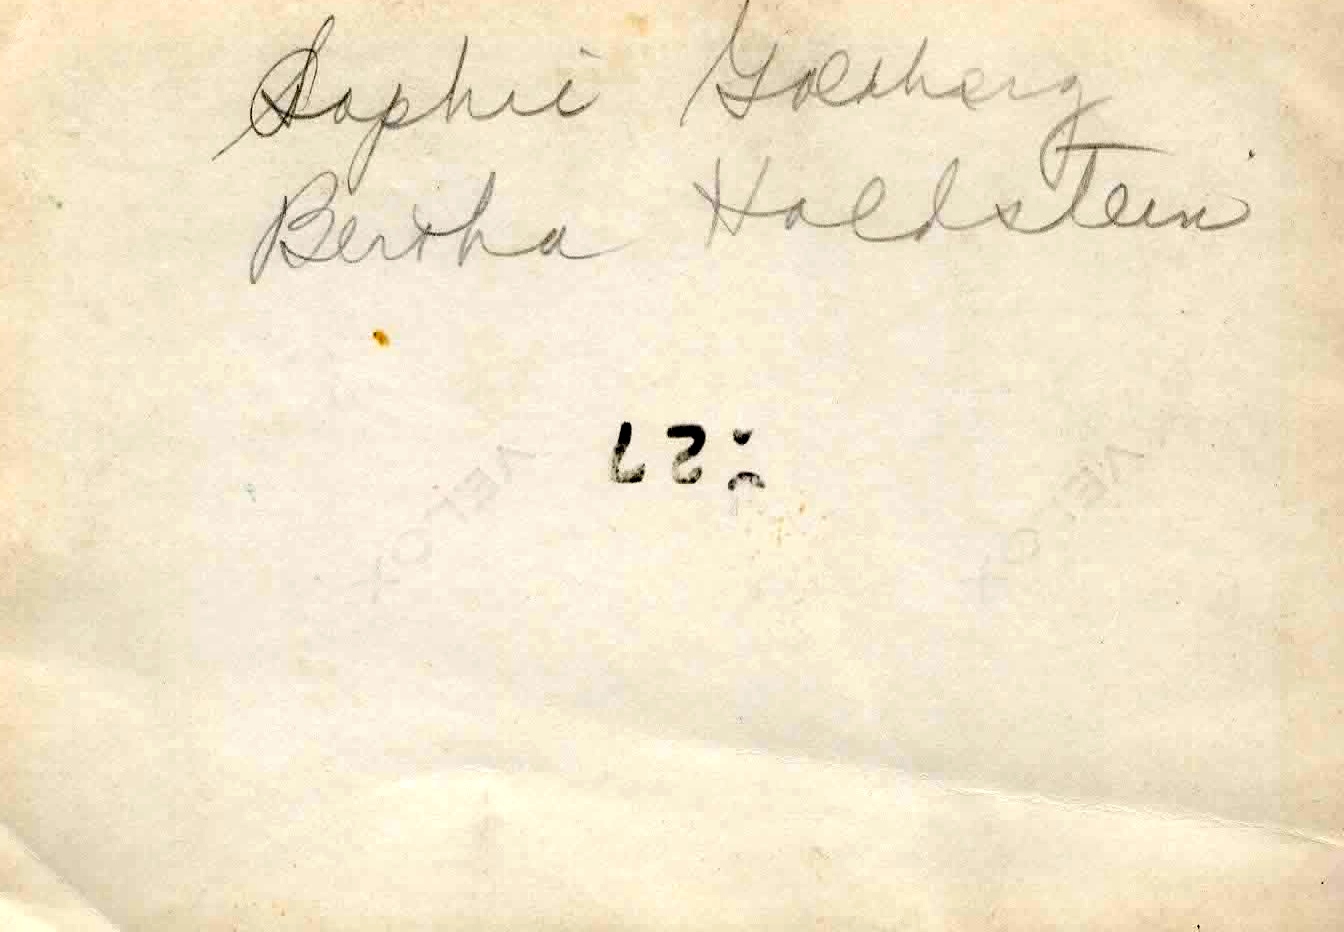 Sophie Goldberg
Bertha Holdstein
VELOX VELOX